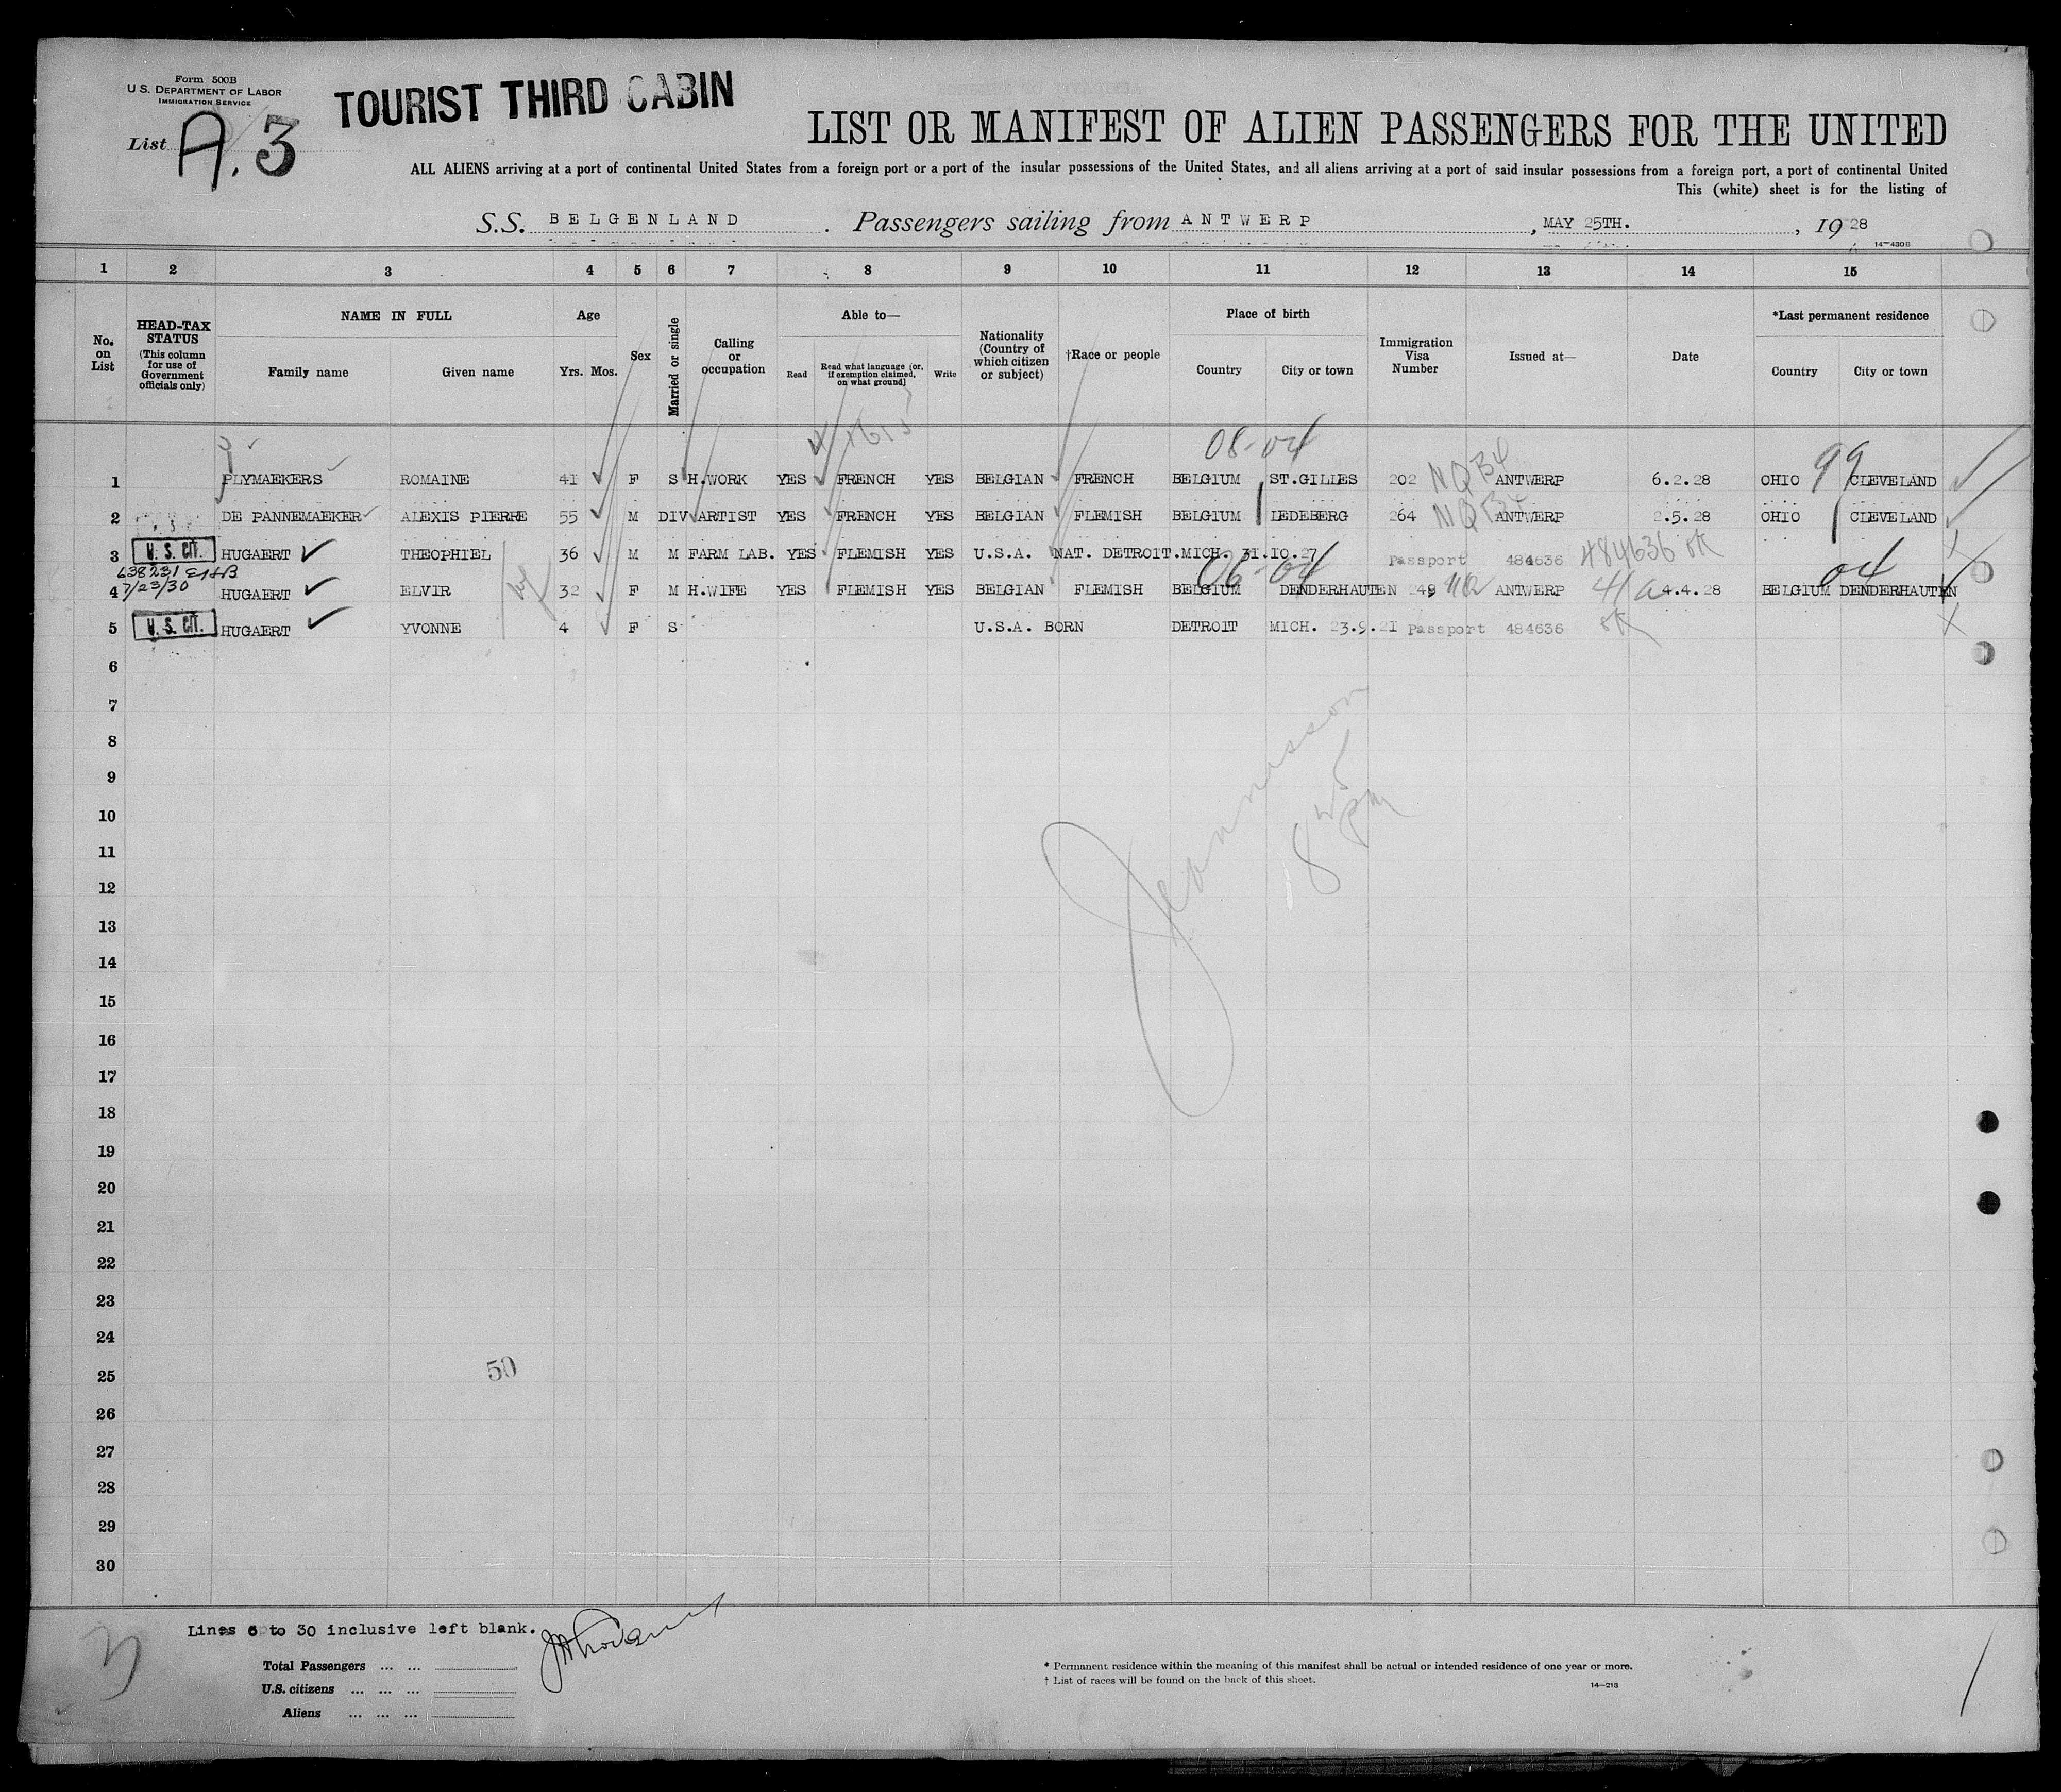 Form 500B
U. S. DEPARTMENT OF LABOR
IMMIGRATION SERVICE
TOURIST THIRD CABIN
List A. 3
LIST OR MANIFEST OF ALIEN PASSENGERS FOR THE UNITED
ALL ALIENS arriving at a port of continental United States from a foreign port or a port of the insular possessions of the United States, and all aliens arriving at a port of said insular possessions from a foreign port, a port of continental United
This (white) sheet is for the listing of
S.S. BELGENLAND. Passengers sailing from ANTWERP, MAY 25TH., 1928
14—430B
1 2 3 4 5 6 7 8 9 10 11 12 13 14 15
No. on List
HEAD-TAX STATUS
(This column for use of Government officials only)
NAME IN FULL
Family name Given name
Age
Yrs. Mos.
Sex
Married or single
Calling or occupation
Able to—
Read Read what language [or, if exemption claimed, on what ground] Write
Nationality (Country of which citizen or subject)
†Race or people
Place of birth
Country City or town
Immigration Visa Number
Issued at—
Date
*Last permanent residence
Country City or town
08-04
1 PLYMAEKERS ROMAINE 41 F S H.WORK YES FRENCH YES BELGIAN FRENCH BELGIUM ST.GILLES 202 NQB4 ANTWERP 6.2.28 OHIO 99 CLEVELAND
2 DE PANNEMAEKER ALEXIS PIERRE 55 M DIV ARTIST YES FRENCH YES BELGIAN FLEMISH BELGIUM LEDEBERG 264 ANTWERP 2.5.28 OHIO CLEVELAND
3 U. S. CIT. HUGAERT THEOPHIEL 36 M M FARM LAB. YES FLEMISH YES U.S.A. NAT. DETROIT.MICH. 31.10.27 Passport 484636 484636 OK
638231
7/23/30
06-04 04
4 HUGAERT ELVIR 32 F M H.WIFE YES FLEMISH YES BELGIAN FLEMISH BELGIUM DENDERHAUTEN 249 ANTWERP 4.4.28 BELGIUM DENDERHAUTEN
5 U. S. CIT. HUGAERT YVONNE 4 F S U.S.A. BORN DETROIT MICH. 23.9.21 Passport 484636 OK
6
7
8
9
10
11
12
13
14
15
16
17
18
19
20
21
22
23
24
50
25
26
27
28
29
30
Lines 6 to 30 inclusive left blank.
3
Total Passengers ... ...
U.S. citizens ... ... ...
Aliens ... ... ...
* Permanent residence within the meaning of this manifest shall be actual or intended residence of one year or more.
† List of races will be found on the back of this sheet.
14—213